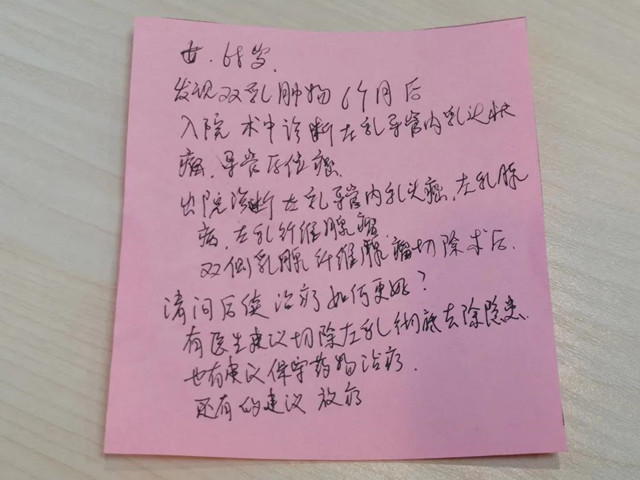 女. 65岁.
发现双乳肿物6个月后
入院 术中诊断左乳导管内乳头状
瘤,导管原位癌.
出院诊断左乳导管内乳头瘤,左乳腺
病,左乳纤维腺瘤.
双侧乳腺纤维腺瘤切除术后.
请问后续治疗如何更好?
有医生建议切除左乳彻底去除隐患.
也有建议保守药物治疗.
还有的建议放疗